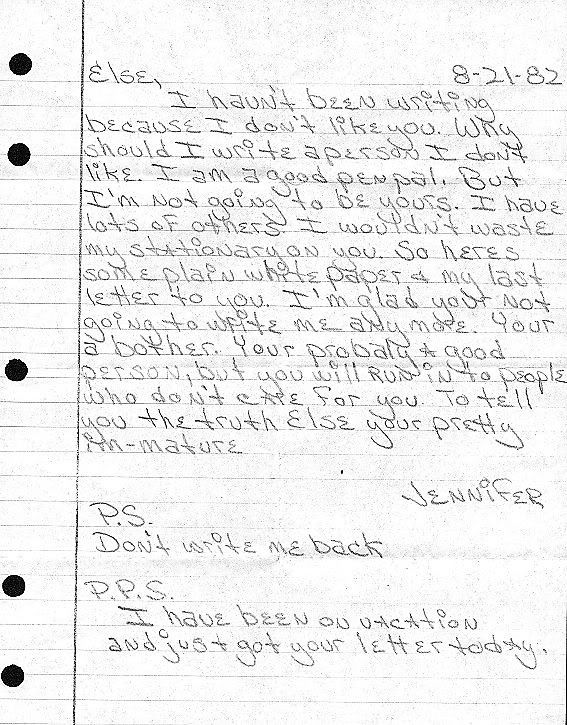 Else, 8-21-82
I haun't been writing
because I don't like you. Why
should I write a person I don't
like. I am a good penpal. But
I'm not going to be yours. I have
lots of others I wouldn't waste
my stationary on you. So heres
some plain white paper & my last
letter to you. I'm glad your not
going to write me any more. Your
a bother. Your probaly a good
person, but you will RUN in to people
who don't care for you. To tell
you the truth Else your pretty
im-mature
JENNIFER
P.S.
Don't write me back
P.P.S.
I have been on vacation
and just got your letter today.